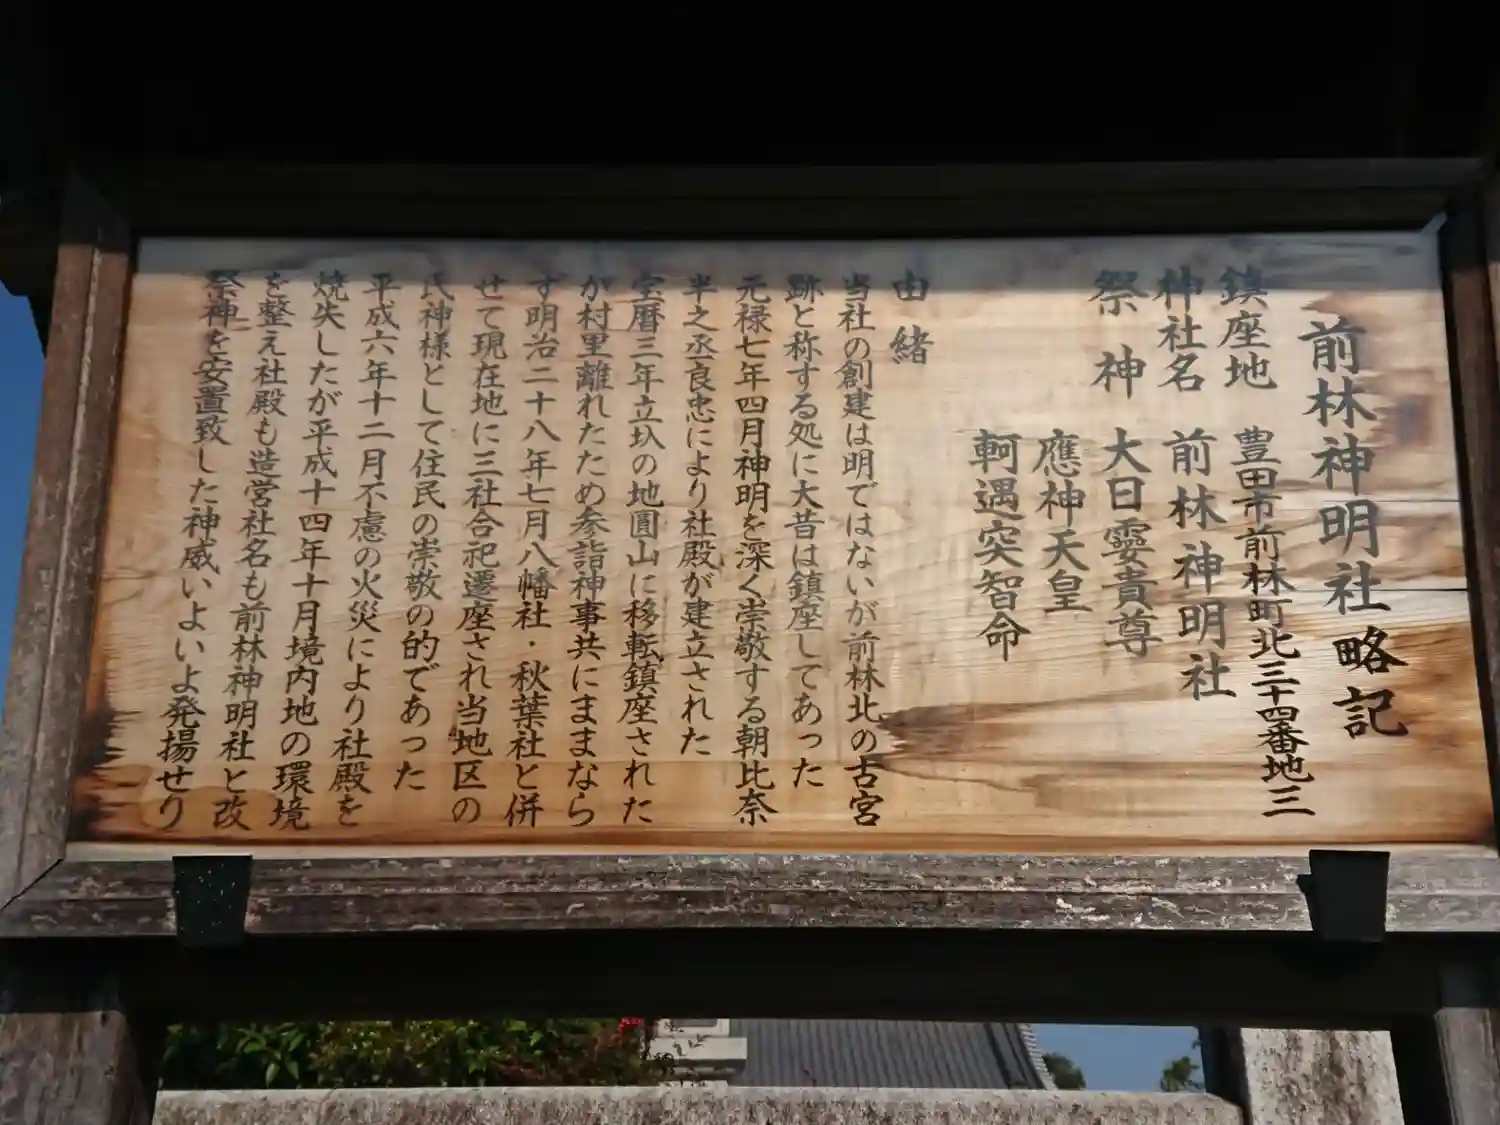 前林神明社略記
鎮座地 豊田市前林町北三十四番地三
神社名 前林神明社
祭神 大日孁貴尊
應神天皇
軻遇突智命
由緒
当社の創建は明ではないが前林北の古宮
跡と称する処に大昔は鎮座してあった
元禄七年四月神明を深く崇敬する朝比奈
半之丞良忠により社殿が建立された
宝暦三年立圦の地圓山に移転鎮座された
が村里離れたため参詣神事共にままなら
ず明治二十八年七月八幡社・秋葉社と併
せて現在地に三社合祀遷座され当地区の
氏神様として住民の崇敬の的であった
平成六年十二月不慮の火災により社殿を
焼失したが平成十四年十月境内地の環境
を整え社殿も造営社名も前林神明社と改
祭神を安置致した神威いよいよ発揚せり